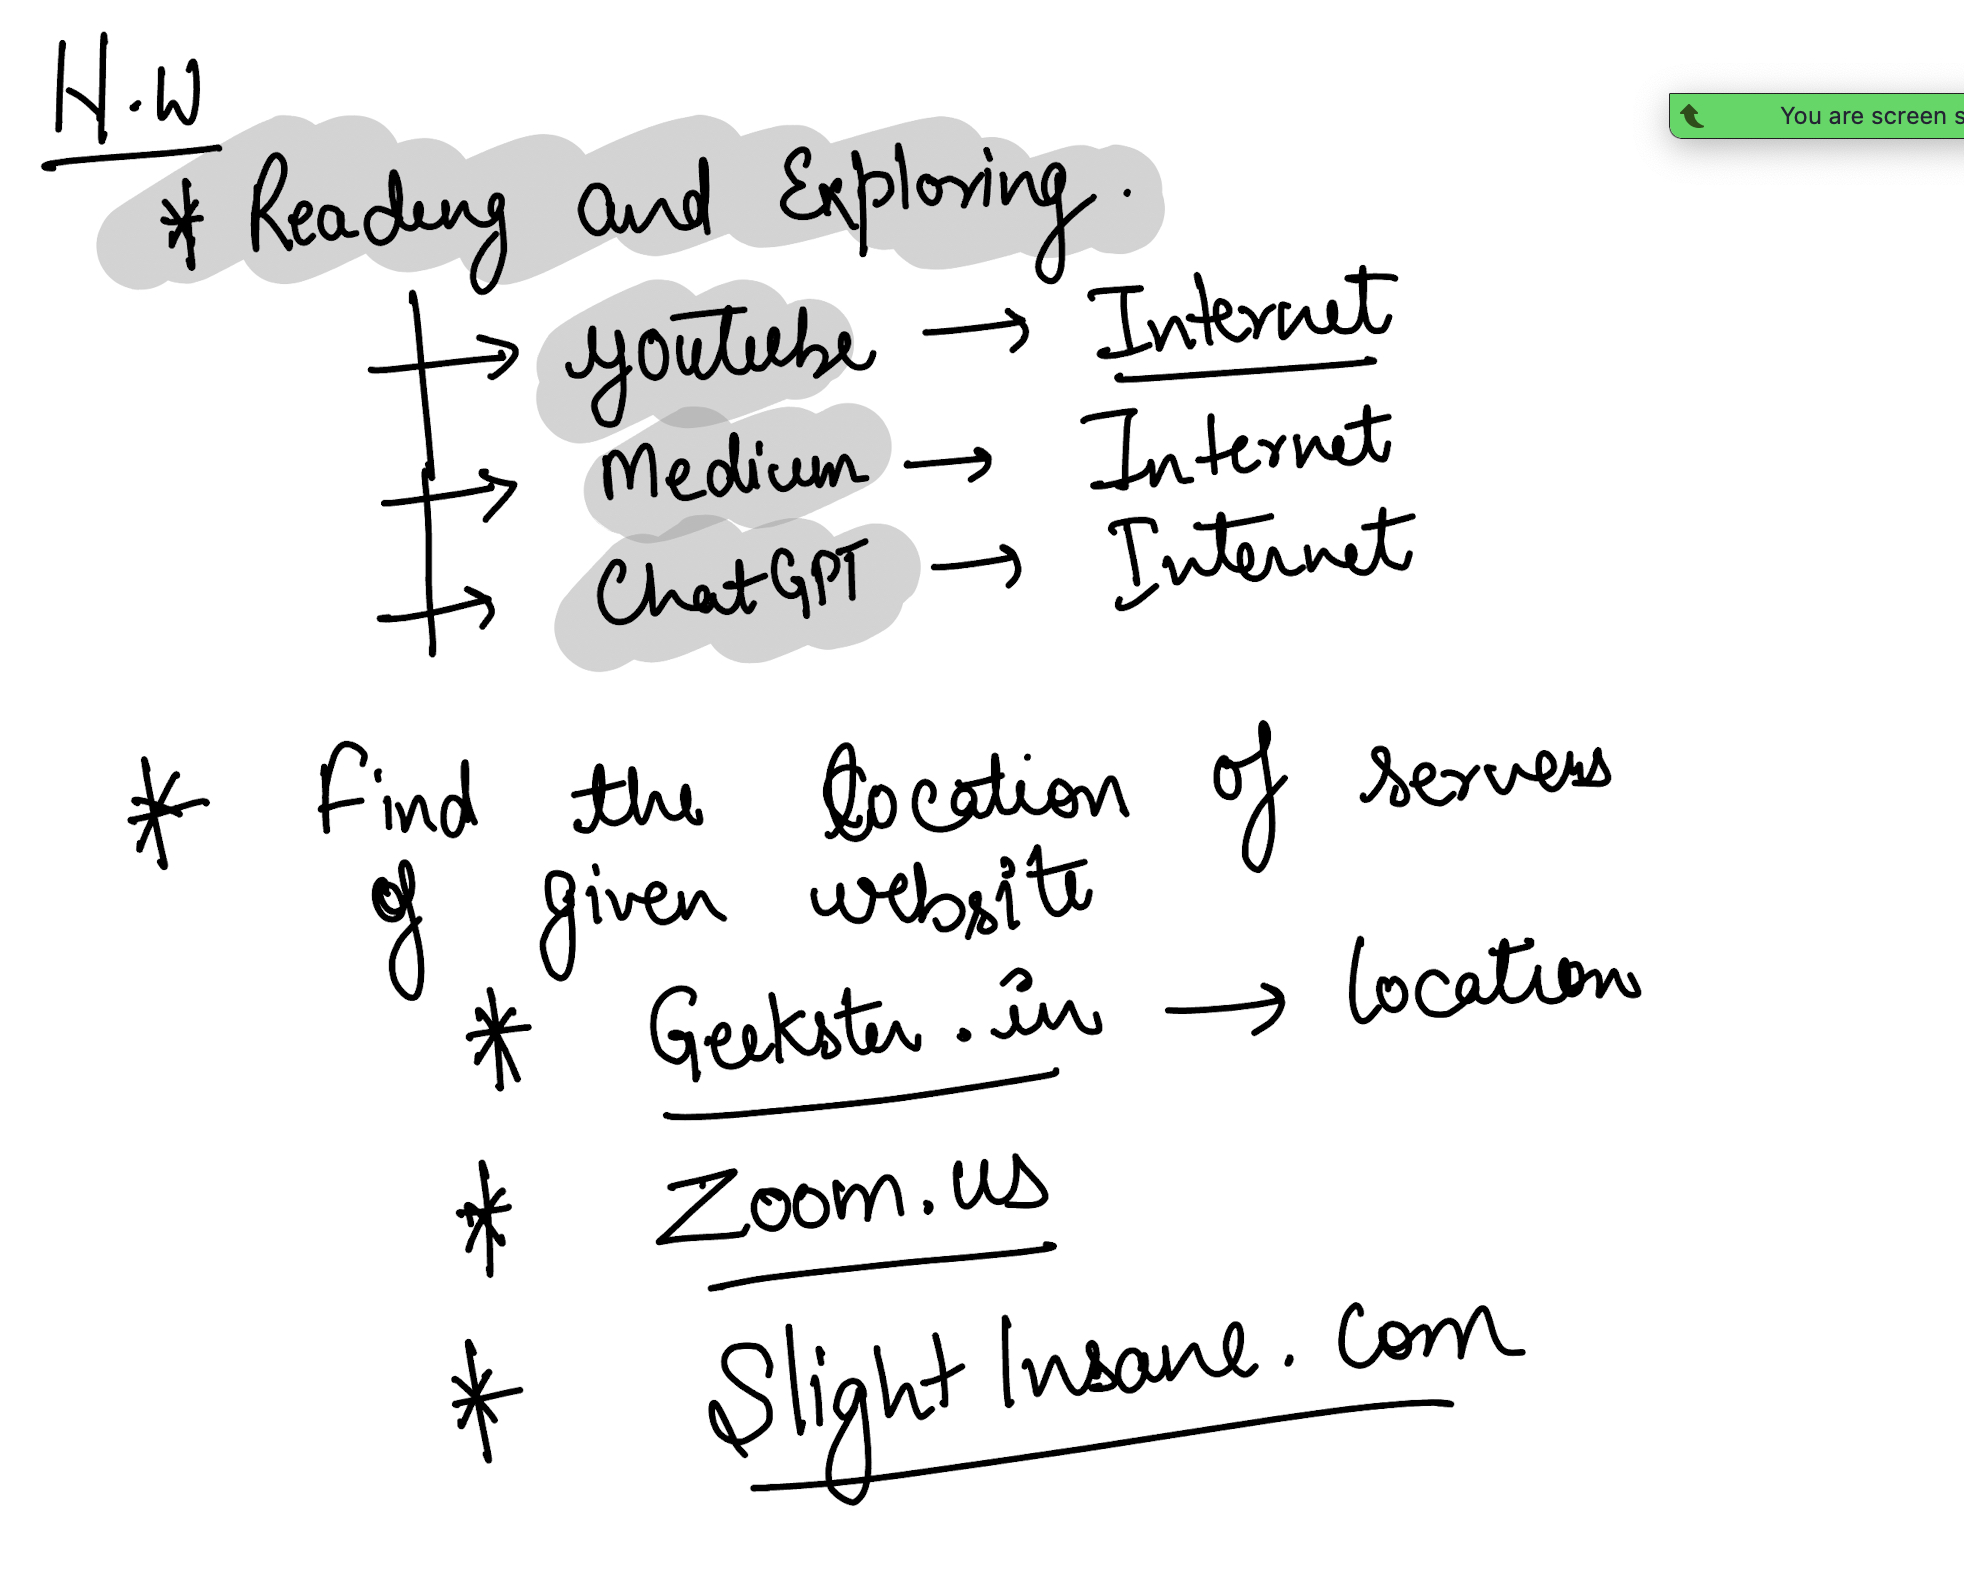 H.W
You are screen s
* Reading and Exploring.
→ youtube → Internet
→ Medium → Internet
→ ChatGPT → Internet
* Find the location of servers
of given website
* Geekster.in → location
* Zoom.us
* SlightInsane.com